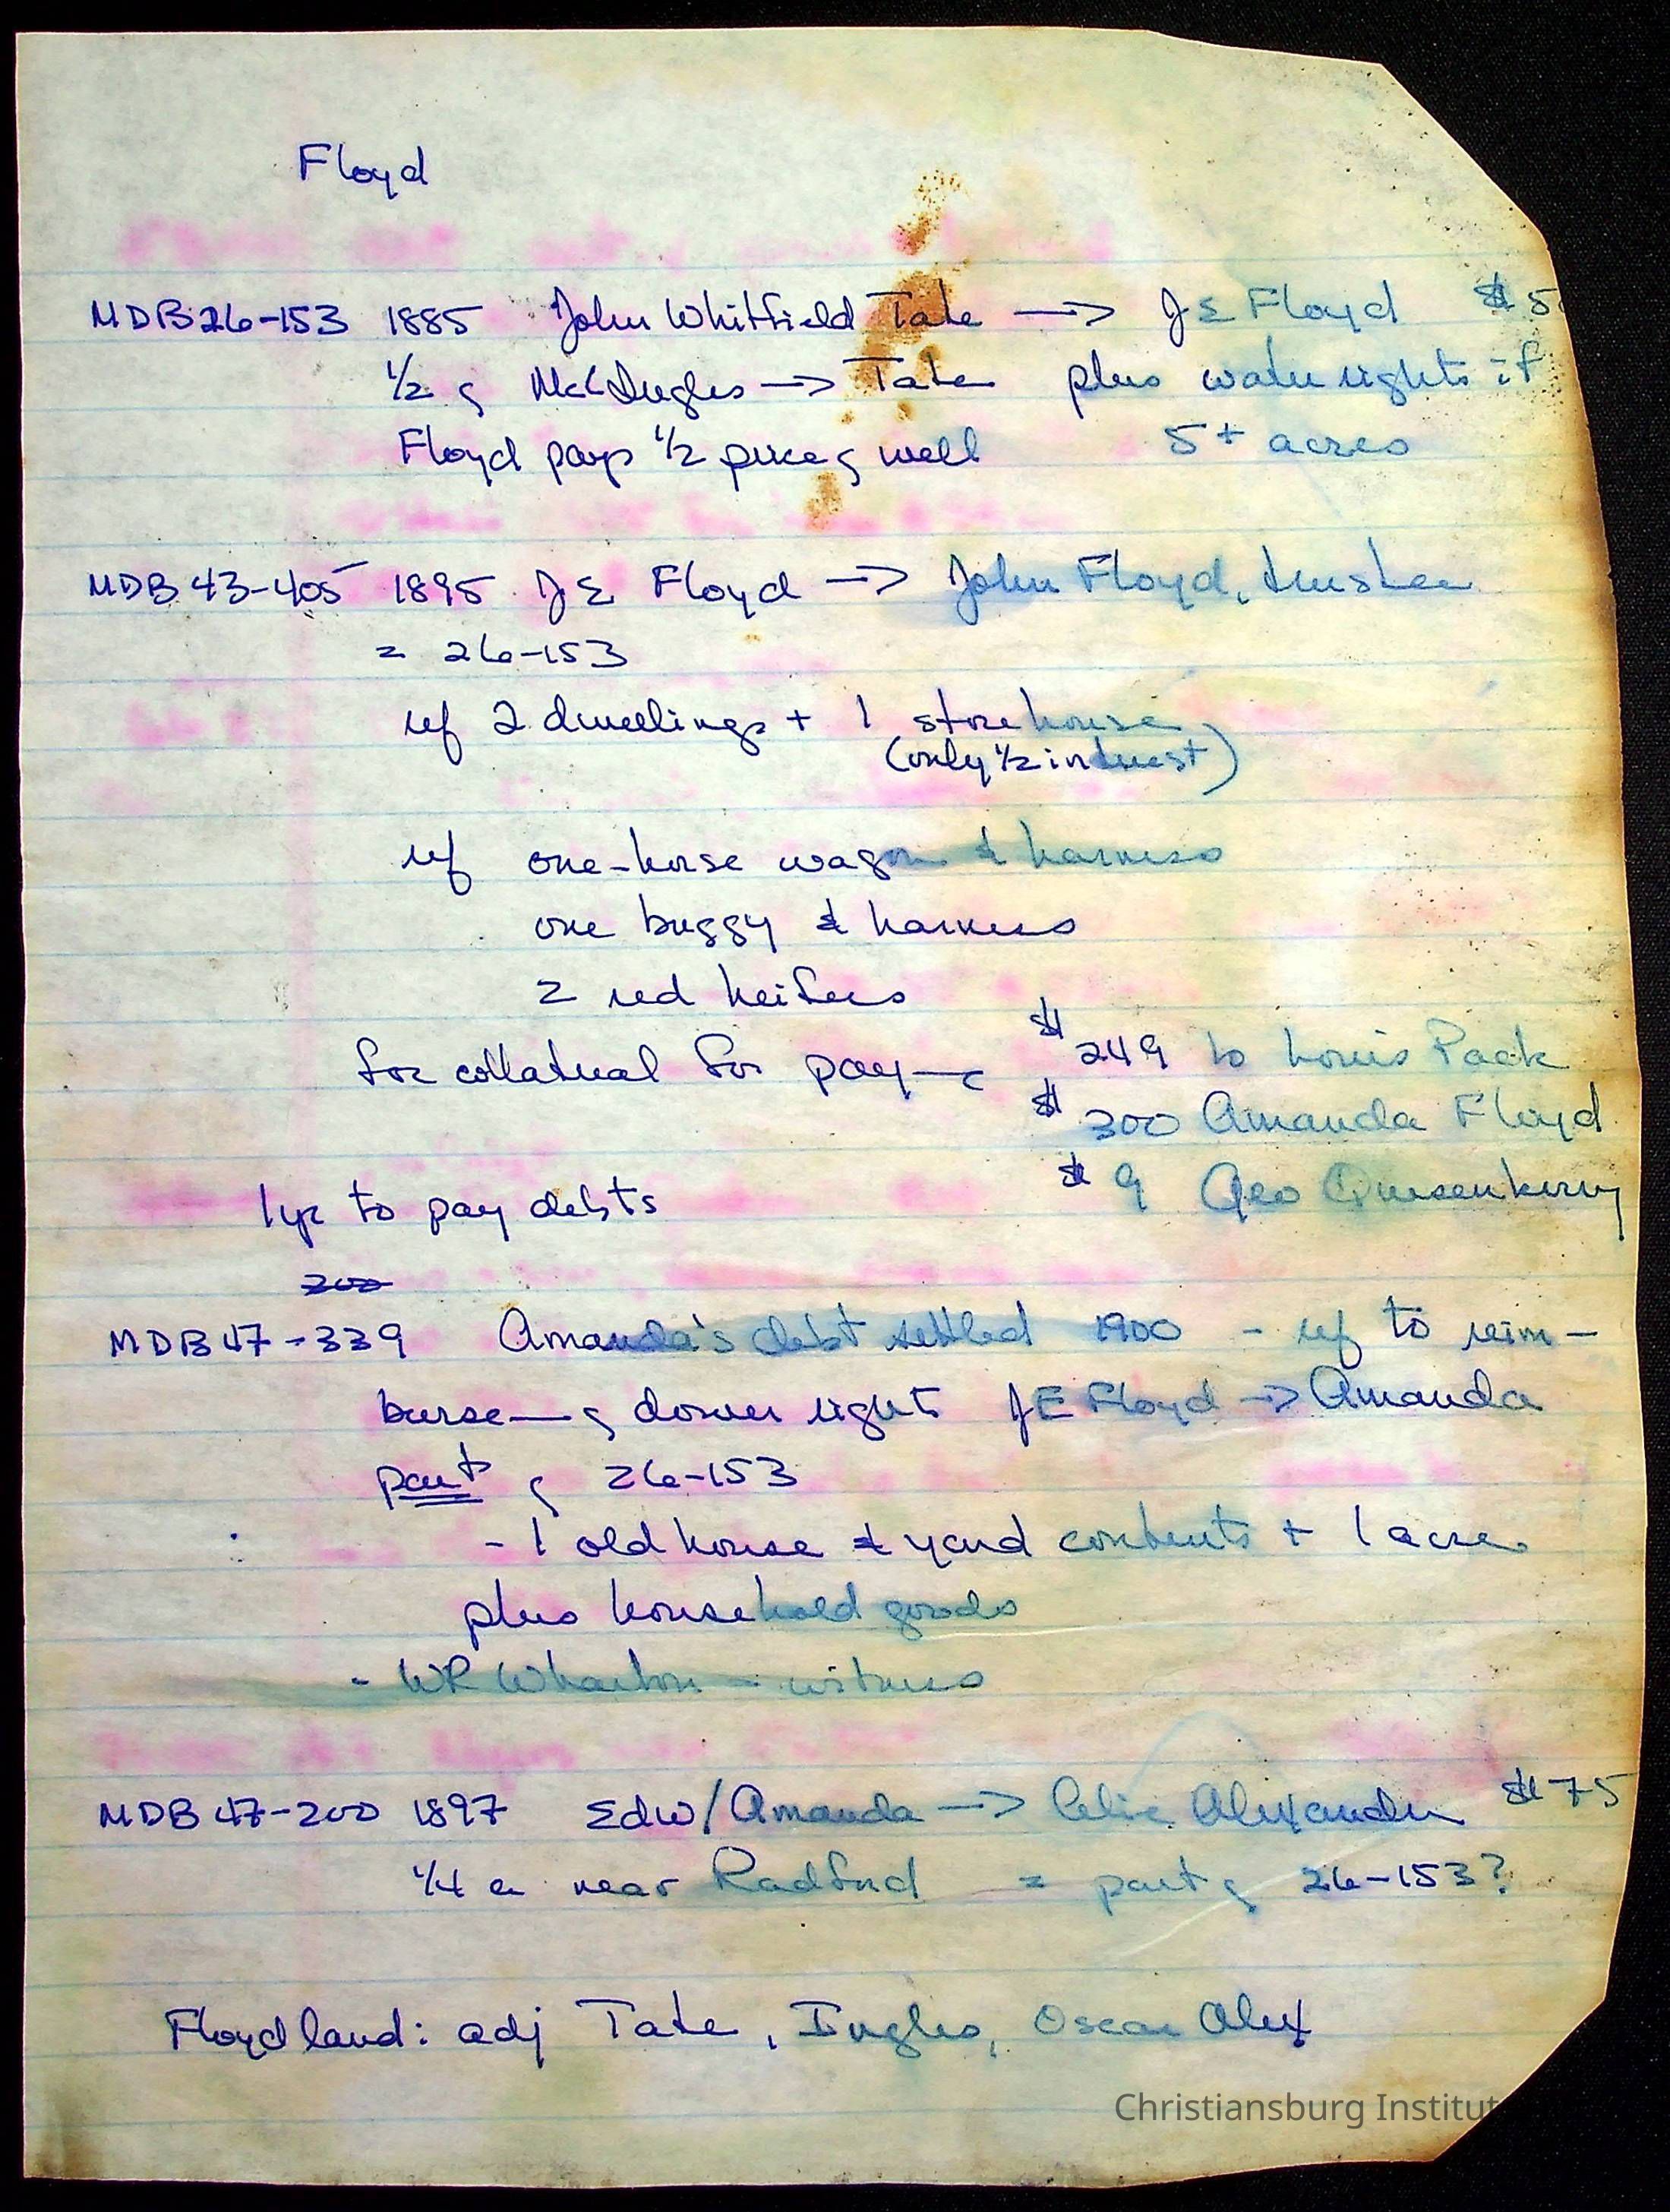 Floyd
MDB 26-153 1885 John Whitfield Tate → JE Floyd $5
1/2 of McC Ingles → Tate plus water rights if
Floyd pays 1/2 price of well 5+ acres
MDB 43-405 1895 JE Floyd → John Floyd, trustee
= 26-153
ref 2 dwellings + 1 storehouse
(only 1/2 interest)
ref one-horse wagon & harness
one buggy & harness
2 red heifers
for collateral for pay—
$249 to Louis Pack
$300 Amanda Floyd
$9 Geo Quesenberry
1 yr to pay debts
200
MDB 47-339 Amanda's debt settled 1900 - ref to reim-
burse— of dower right JE Floyd → Amanda
part of 26-153
- 1 old house & yard contents + 1 acre
plus household goods
- WR Wharton - witness
MDB 47-200 1897 Edw/Amanda → Alexander $75
1/4 a near Radford = part of 26-153?
Floyd land: adj Tate, Ingles, Oscar Alex
Christiansburg Institut